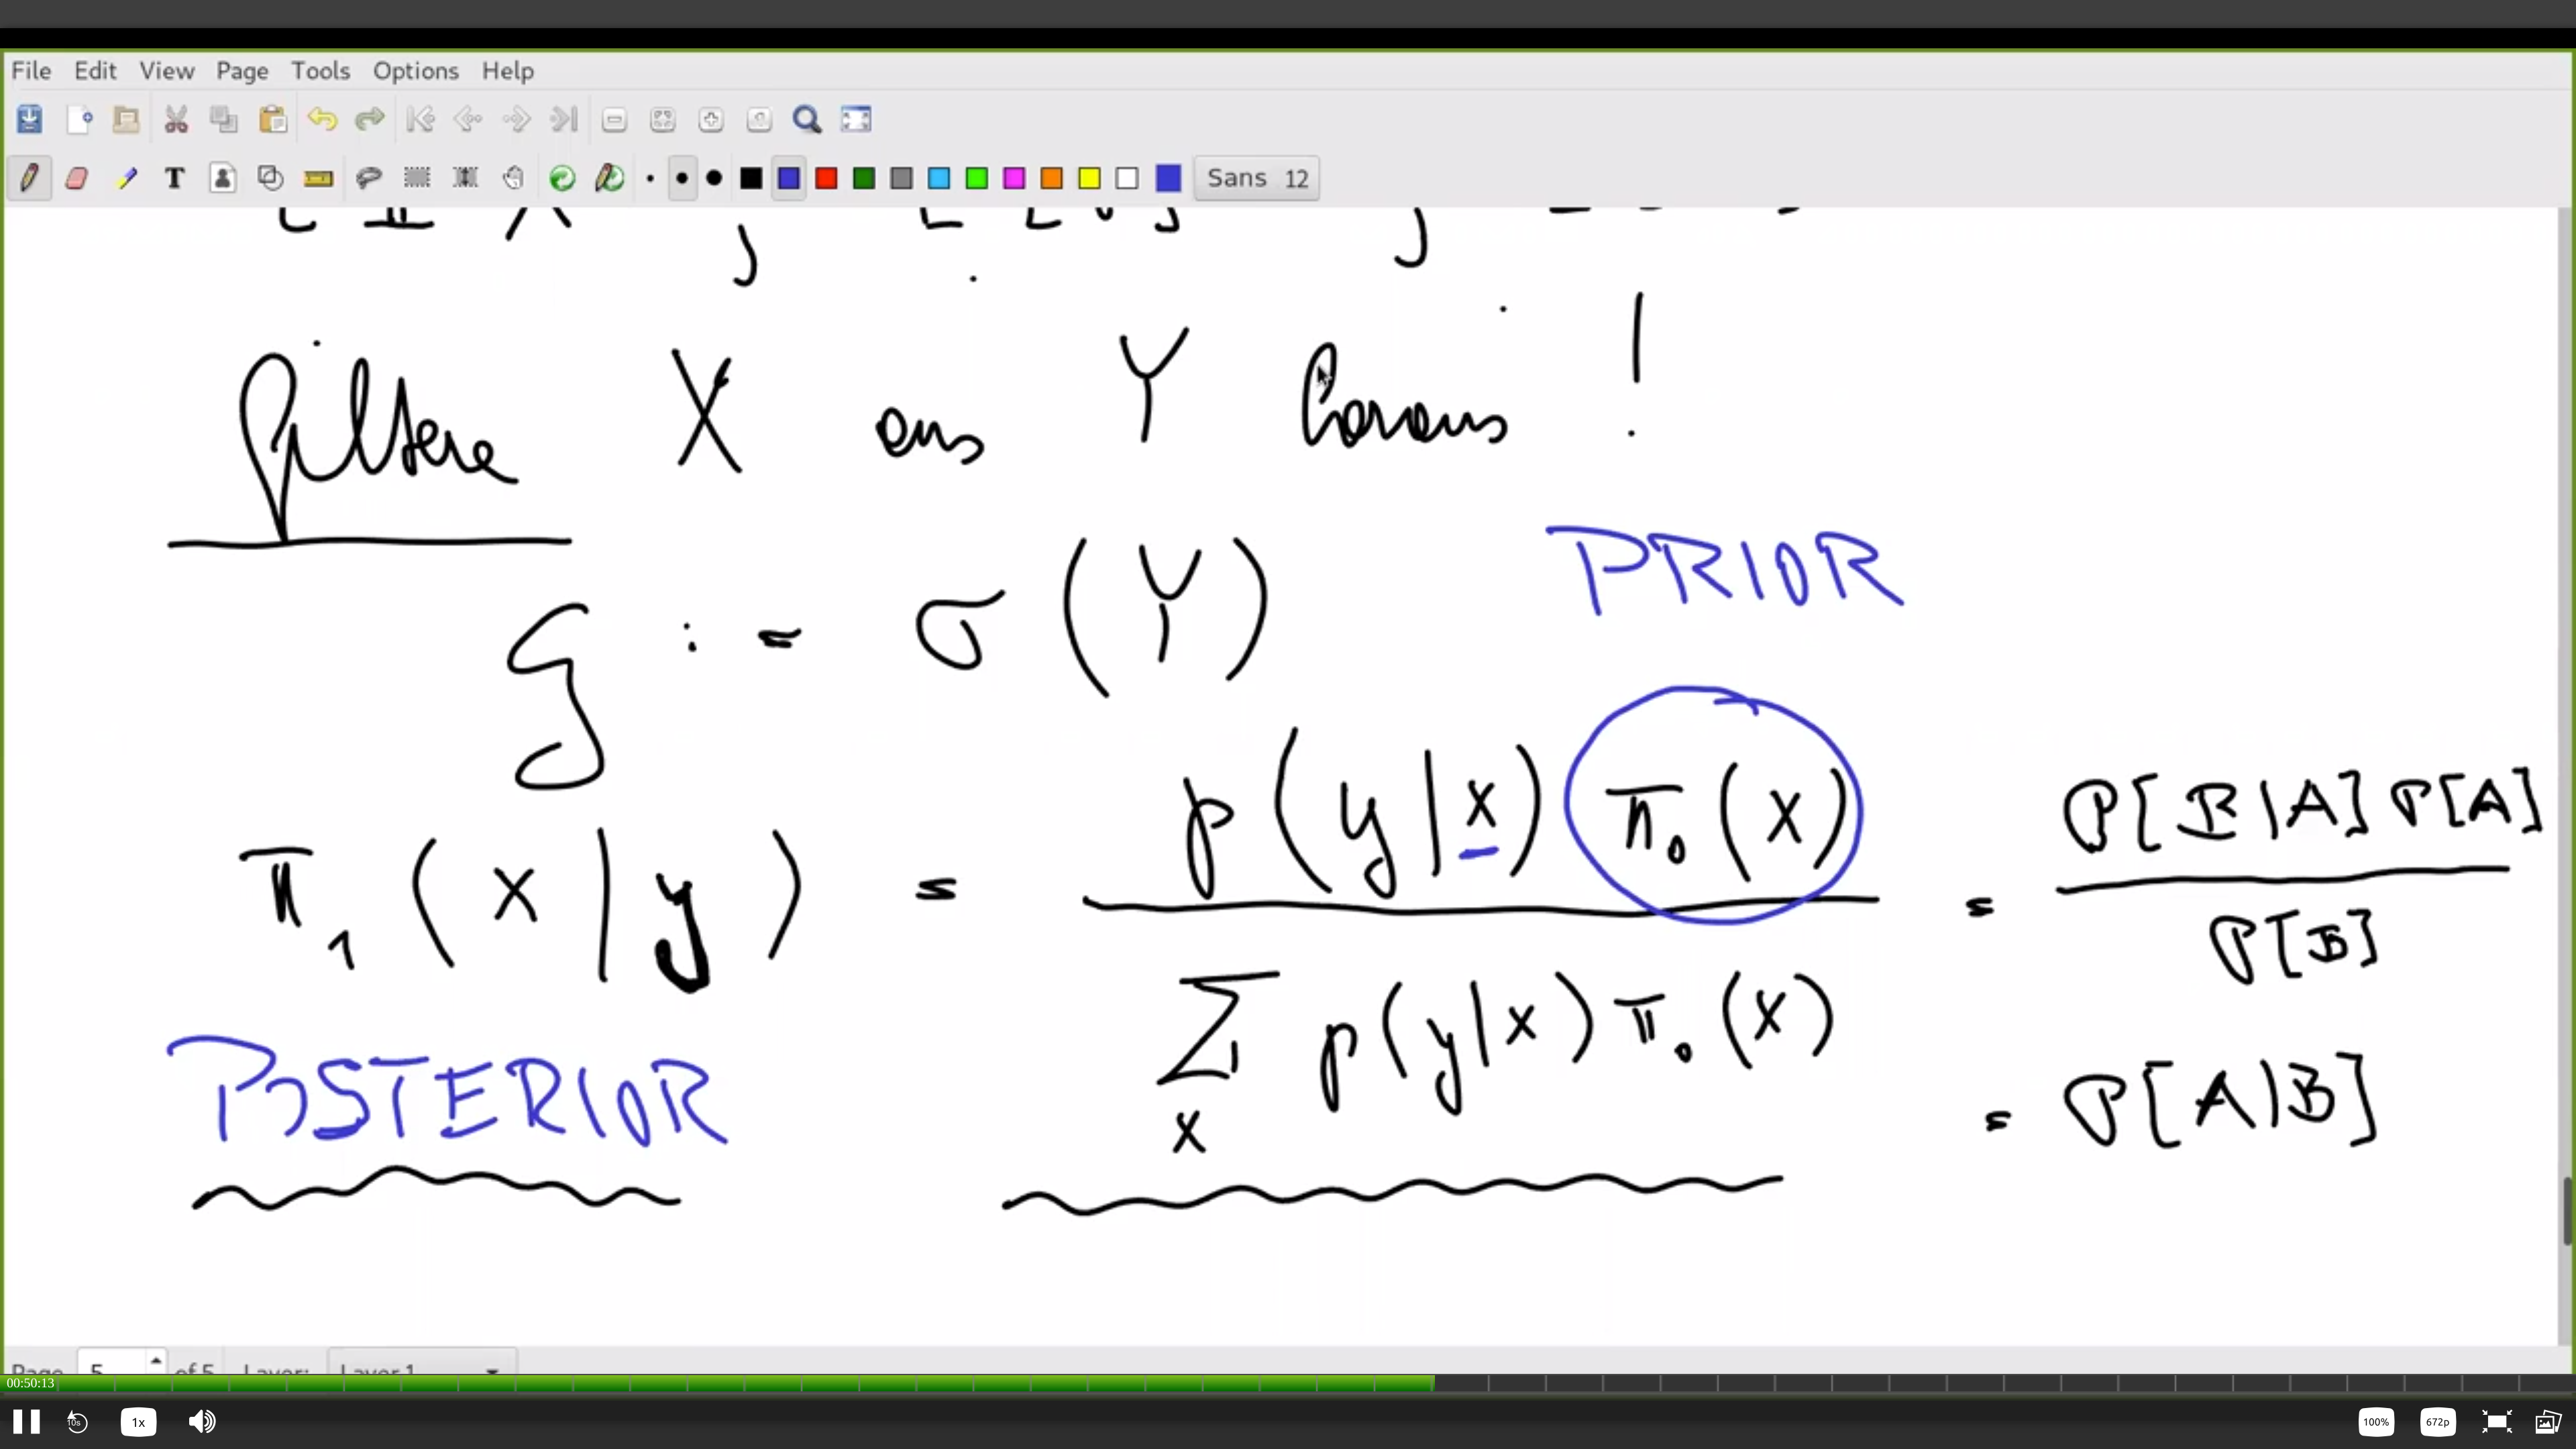 File Edit View Page Tools Options Help
Sans 12
filtere X aus Y heraus !
G := σ(Y)
PRIOR
π₁(x|y) = p(y|x) π₀(x) / ∑ₓ p(y|x) π₀(x) = P[B|A] P[A] / P[B]
= P[A|B]
POSTERIOR
Page 5 of 5 Layer: Layer 1
00:50:13
10s 1x 100% 672p